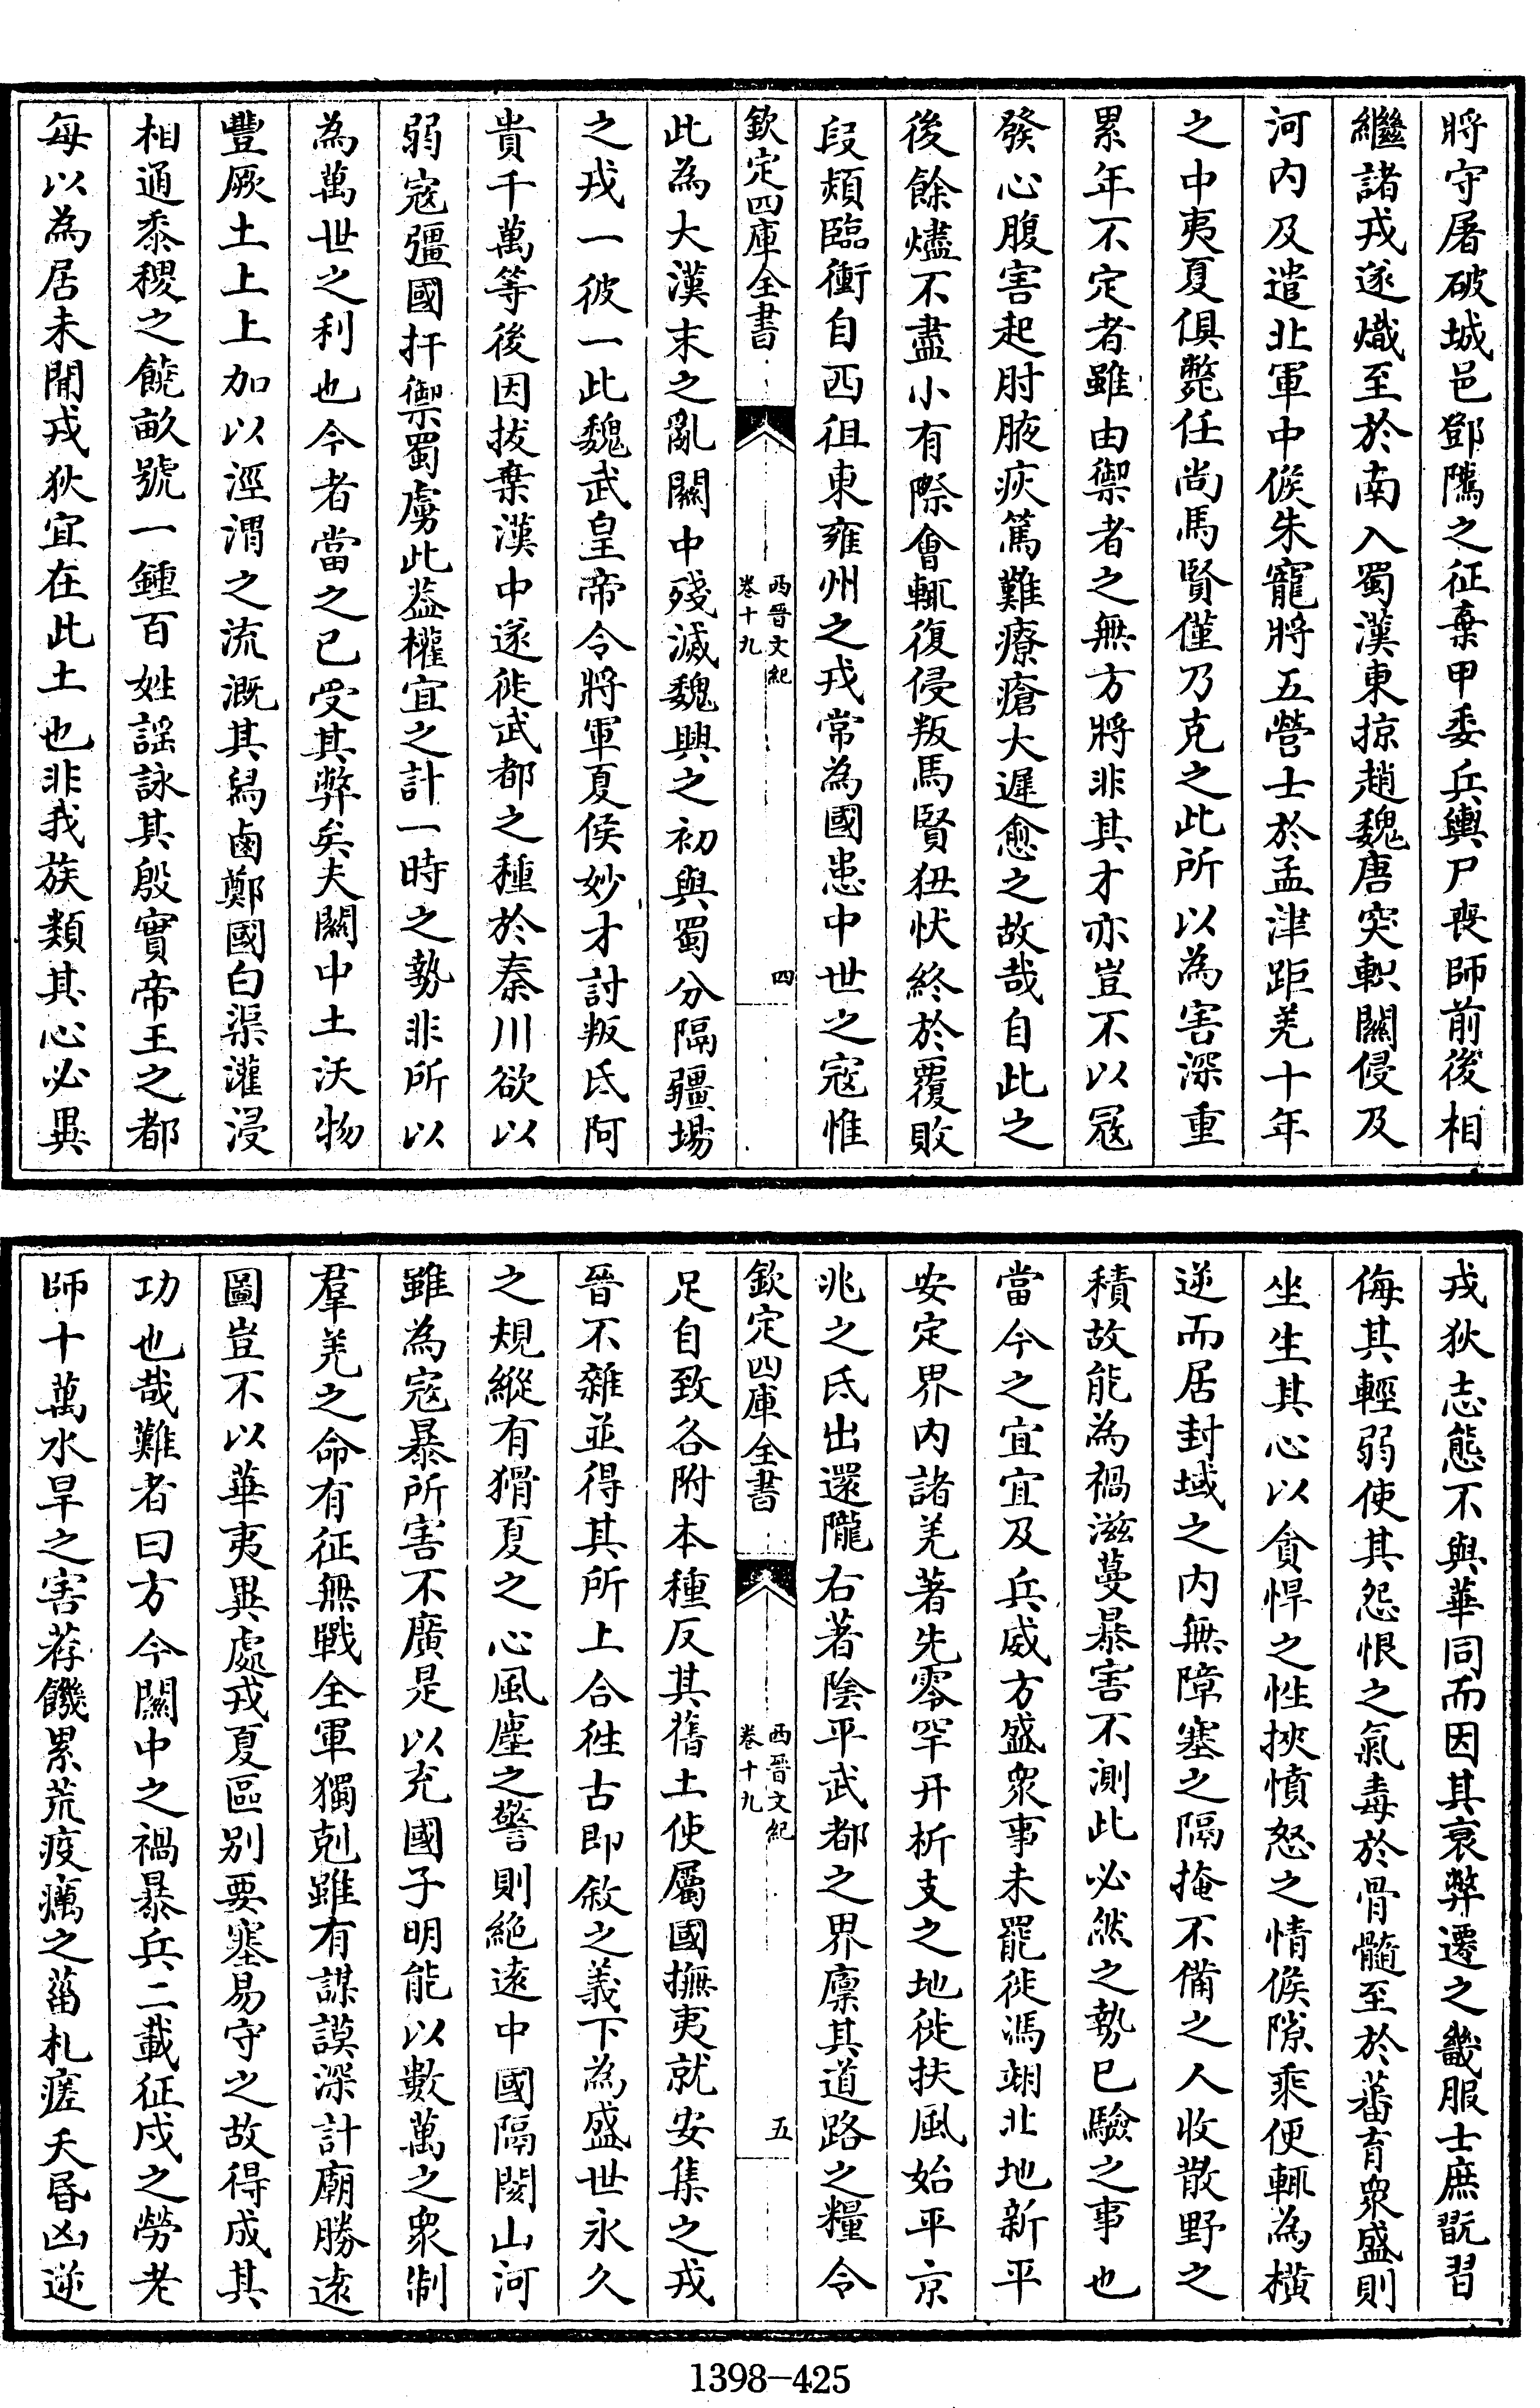 將守屠破城邑鄧隲之征棄甲委兵輿尸喪師前後相
繼諸戎遂熾至於南入蜀漢東掠趙魏唐突軹關侵及
河内及遣北軍中候朱寵將五營士於孟津距羌十年
之中夷夏俱斃任尚馬賢僅乃克之此所以為害深重
累年不定者雖由禦者之無方將非其才亦豈不以冦
發心腹害起肘腋疢篤難療瘡大遲愈之故哉自此之
後餘燼不盡小有際會輒復侵叛馬賢狃忕終於覆敗
段熲臨衝自西徂東雍州之戎常為國患中世之寇惟
欽定四庫全書
西晉文紀
卷十九
四
此為大漢末之亂關中殘滅魏興之初與蜀分隔疆場
之戎一彼一此魏武皇帝令將軍夏侯妙才討叛氐阿
貴千萬等後因拔棄漢中遂徙武都之種於秦川欲以
弱寇彊國扞禦蜀虜此葢權宜之計一時之勢非所以
為萬世之利也今者當之已受其弊矣夫關中土沃物
豐厥土上上加以涇渭之流溉其舄鹵鄭國白渠灌浸
相通黍稷之饒畝號一鍾百姓謡詠其殷實帝王之都
每以為居未聞戎狄宜在此土也非我族類其心必異
戎狄志態不與華同而因其衰弊遷之畿服士庶翫習
侮其輕弱使其怨恨之氣毒於骨髓至於蕃育衆盛則
坐生其心以貪悍之性挾憤怒之情候隙乘便輒為橫
逆而居封域之内無障塞之隔掩不備之人收散野之
積故能為禍滋蔓暴害不測此必然之勢已驗之事也
當今之宜宜及兵威方盛衆事未罷徙馮翊北地新平
安定界内諸羌著先零罕幵析支之地徙扶風始平京
兆之氐出還隴右著陰平武都之界廪其道路之糧令
欽定四庫全書
西晉文紀
卷十九
五
足自致各附本種反其舊土使屬國撫夷就安集之戎
晉不雜並得其所上合徃古即敘之義下為盛世永久
之規縱有猾夏之心風塵之警則絶遠中國隔閡山河
雖為寇暴所害不廣是以充國子明能以數萬之衆制
羣羌之命有征無戰全軍獨剋雖有謀謨深計廟勝遠
圖豈不以華夷異處戎夏區别要塞易守之故得成其
功也哉難者曰方今關中之禍暴兵二載征戍之勞老
師十萬水旱之害荐饑累荒疫癘之菑札瘥夭昬凶逆
1398-425